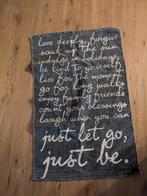 love deeply, forgive
soak up the sun
indulge in holidays
be kind to yourself
live for the moment
go for long walks
enjoy family & friends
count your blessings
laugh when you can
just let go,
just be.